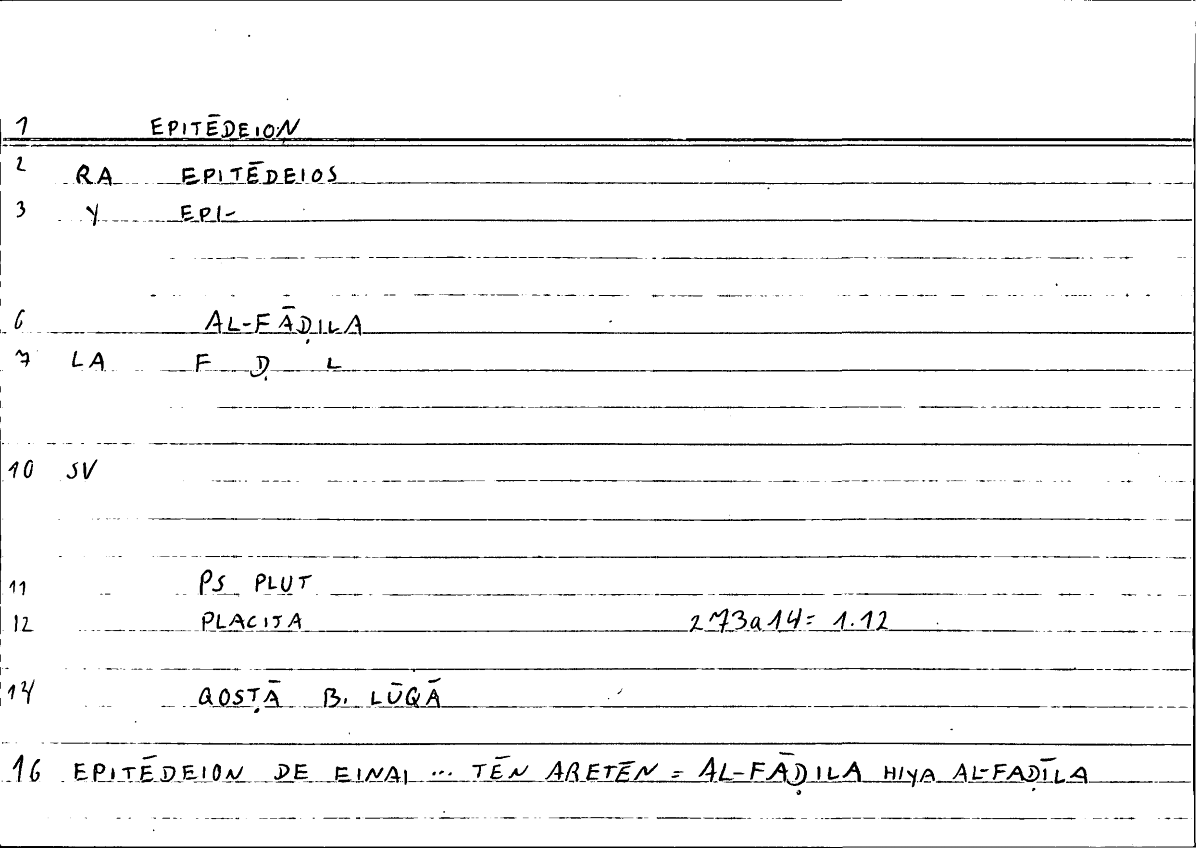 1 EPITĒDEION
2 RA EPITĒDEIOS
3 Y EPI-
6 AL-FĀḌILA
7 LA F Ḍ L
10 SV
11 PS PLUT
12 PLACITA 273a14= 1.12
14 QOSṬĀ B. LŪQĀ
16 EPITĒDEION DE EINAI ... TĒN ARETĒN = AL-FĀḌILA HIYA AL-FAḌĪLA